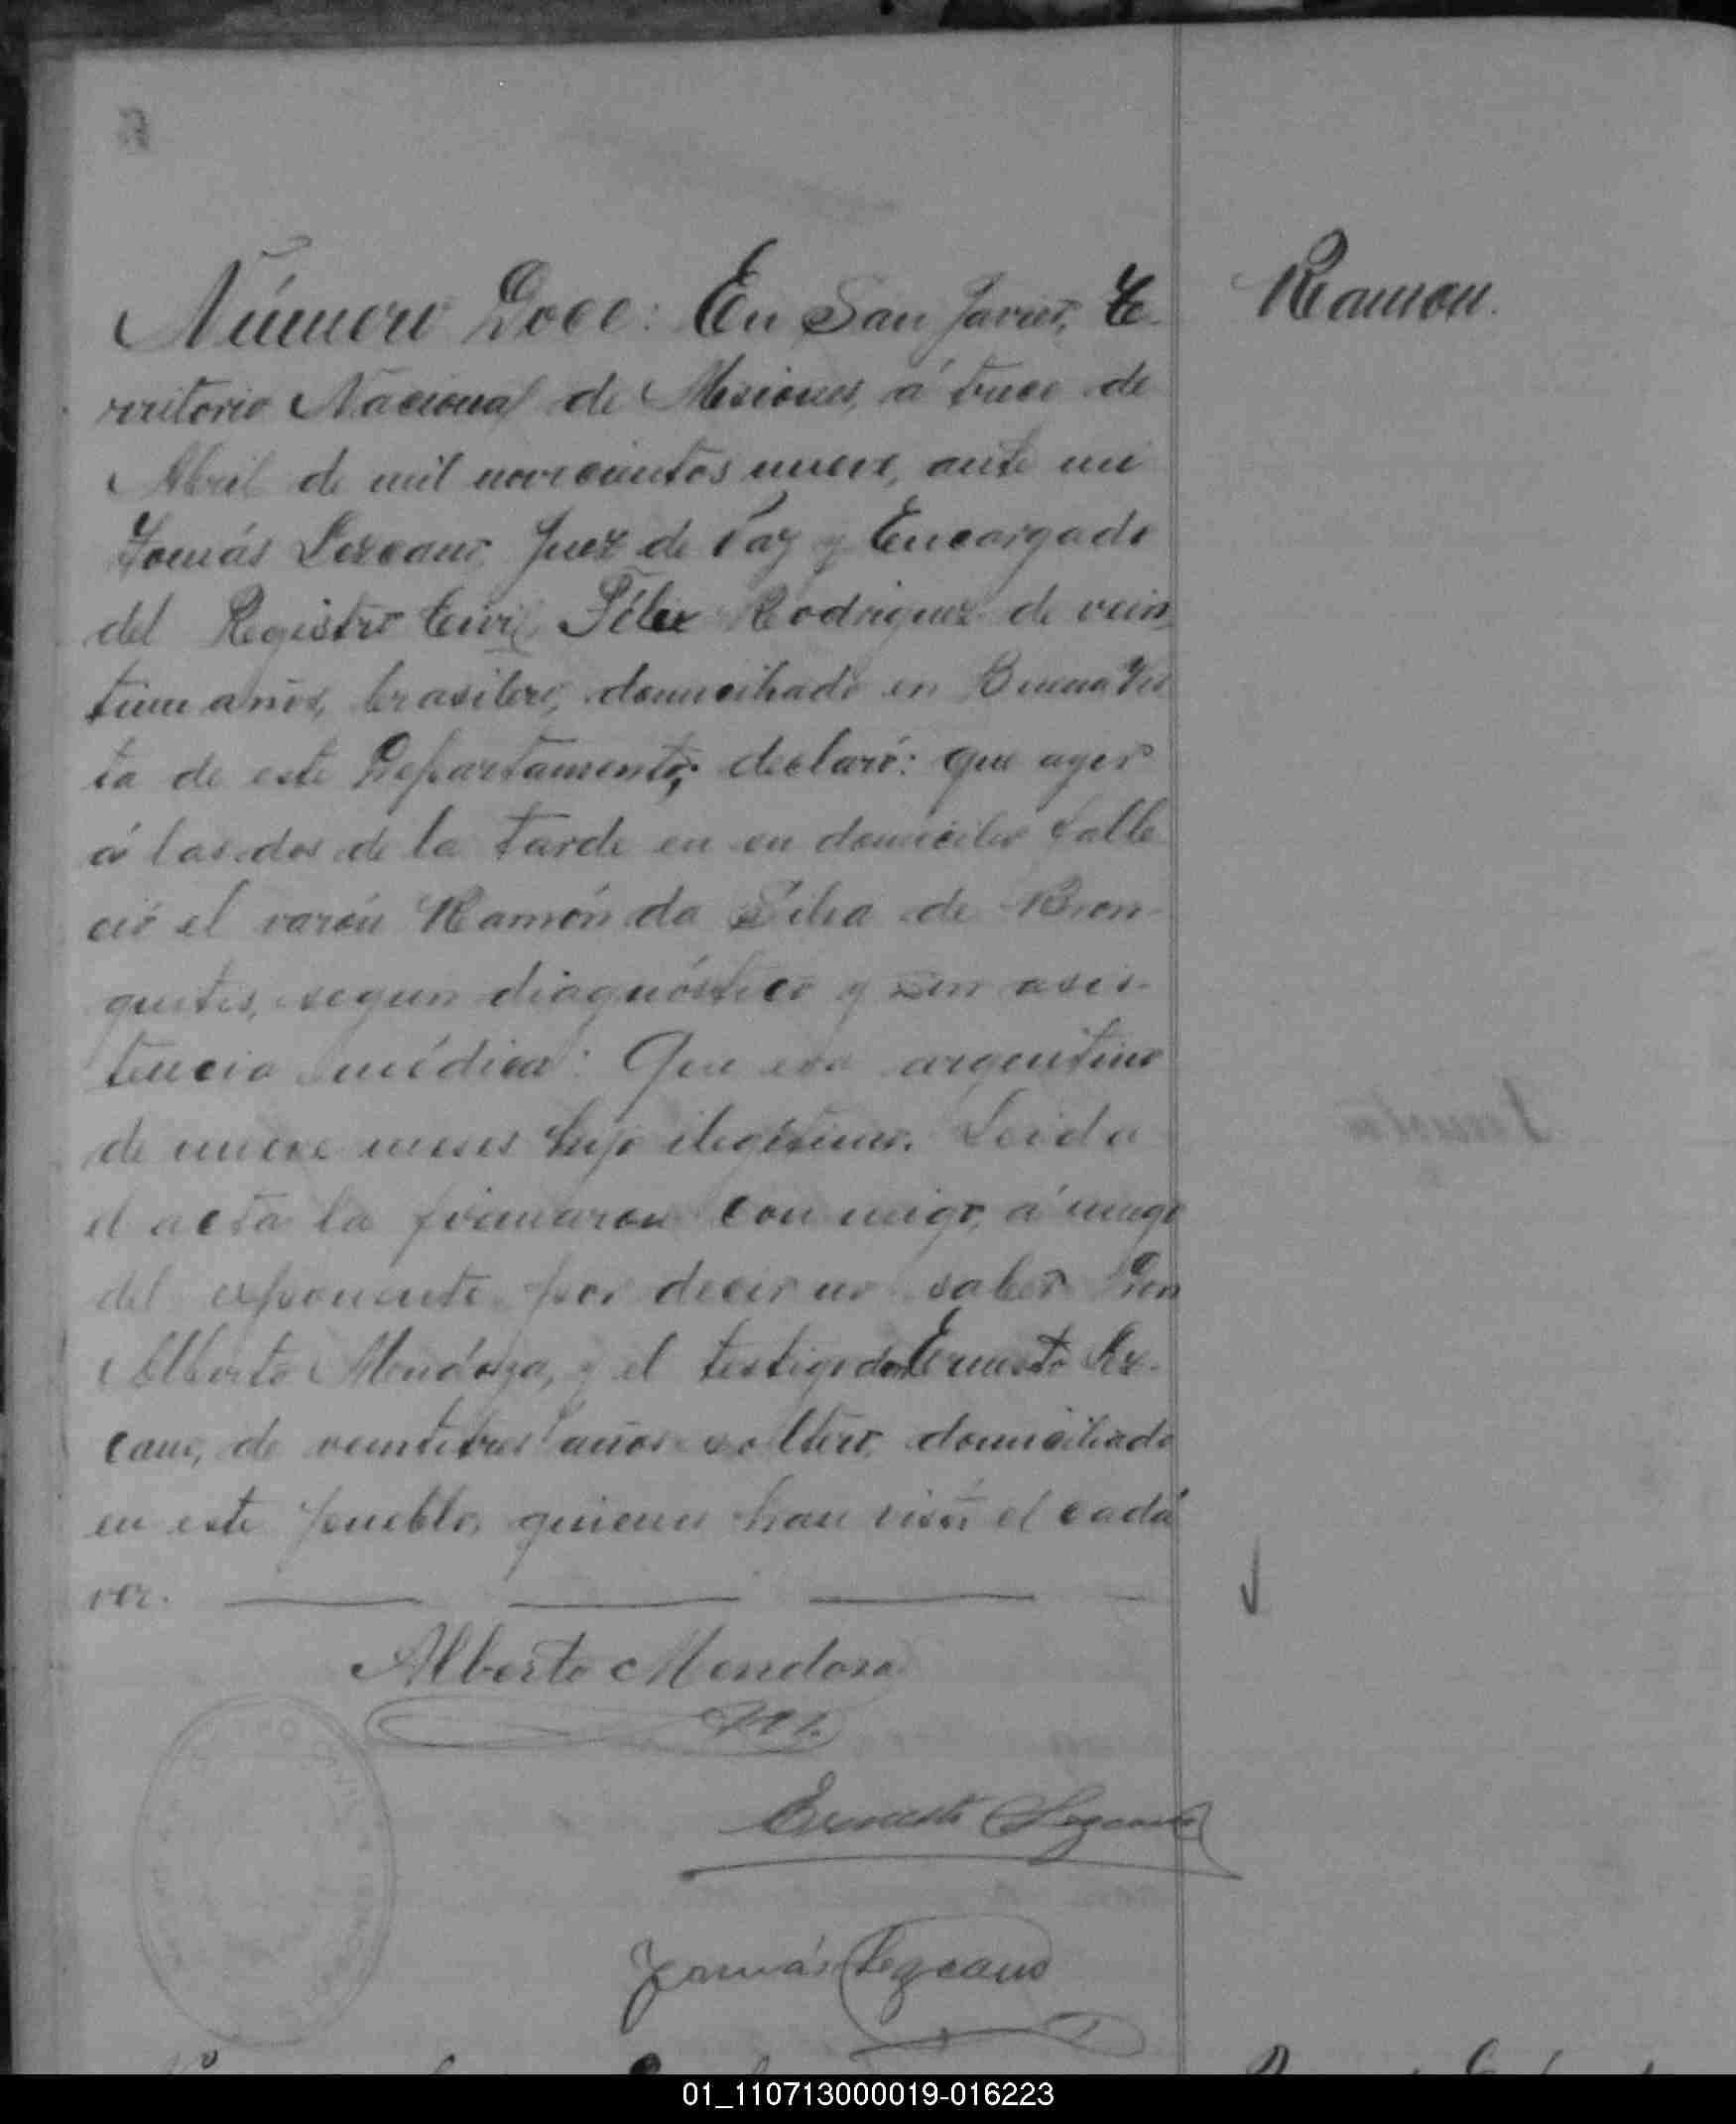 Número Doce: En San Javier, Te-
Ramon.
rritorio Nacional de Misiones, á trece de
Abril de mil novecientos nueve, ante mi
Tomás Lezcano, Juez de Paz y Encargado
del Registro Civil, Félix Rodriguez de vein
tiun años, brasilero, domiciliado en Buena Vis
ta de este Departamento; declaró: que ayer
á las dos de la tarde en su domicilio falle
ció el varón Ramón da Silva de Bron-
quitis, segun diagnóstico y sin asis-
tencia médica: Que era argentino
de nueve meses hijo ilegítimo. Leida
el acta la firmaron con migo, á ruego
del exponente por decir no saber Don
Alberto Mendoza, y el testigo don Ernesto Lez-
cano, de veintitres años soltero, domiciliado
en este pueblo, quienes han visto el cadá
ver.
Alberto Mendoza
Ernesto Lezcano
Tomás Lezcano
01_110713000019-016223